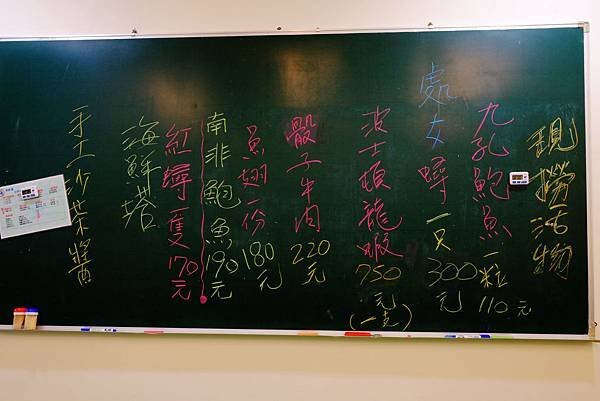 現撈活物
九孔鮑魚一粒110元
處女蟳一只300元
波士頓龍蝦750元(一支)
骰子牛肉220元
魚翅一份180元
南非鮑魚190元
紅蟳一隻170元
海鮮塔
手工沙茶醬